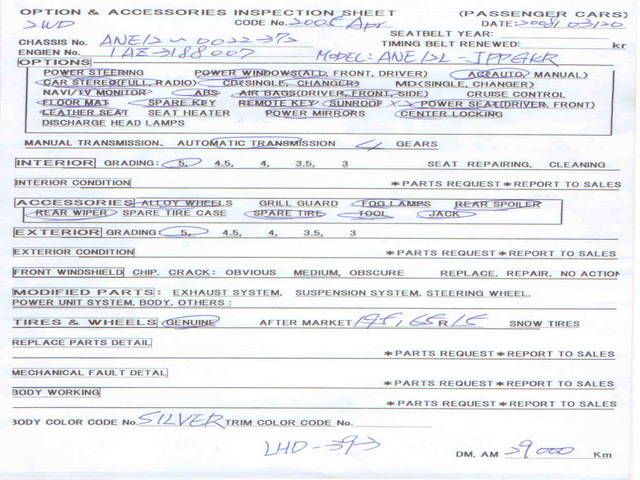 OPTION & ACCESSORIES INSPECTION SHEET (PASSENGER CARS)
2WD CODE No. 2005 Apr DATE: 2008/03/20
SEATBELT YEAR:
CHASSIS No. ANE12 TIMING BELT RENEWED: kr
ENGIEN No. 1AZ-3188007 MODEL: ANE12L-JPPGKR
OPTIONS
POWER STEERING POWER WINDOWS(ALD, FRONT, DRIVER) AC(AUTO, MANUAL)
CAR STEREO(FULL, RADIO) CD(SINGLE, CHANGER) MD(SINGLE, CHANGER)
NAVI/TV MONITOR ABS AIR BAGS(DRIVER, FRONT, SIDE) CRUISE CONTROL
FLOOR MAT SPARE KEY REMOTE KEY SUNROOF POWER SEAT(DRIVER, FRONT)
LEATHER SEAT SEAT HEATER POWER MIRRORS CENTER LOCKING
DISCHARGE HEAD LAMPS
MANUAL TRANSMISSION, AUTOMATIC TRANSMISSION 4 GEARS
INTERIOR GRADING: 5, 4.5, 4, 3.5, 3 SEAT REPAIRING, CLEANING
INTERIOR CONDITION *PARTS REQUEST*REPORT TO SALES
ACCESSORIES ALLOY WHEELS GRILL GUARD FOG LAMPS REAR SPOILER
REAR WIPER SPARE TIRE CASE SPARE TIRE TOOL JACK
EXTERIOR GRADING: 5, 4.5, 4, 3.5, 3
EXTERIOR CONDITION *PARTS REQUEST*REPORT TO SALES
FRONT WINDSHIELD CHIP, CRACK: OBVIOUS MEDIUM, OBSCURE REPLACE, REPAIR, NO ACTION
MODIFIED PARTS: EXHAUST SYSTEM, SUSPENSION SYSTEM, STEERING WHEEL,
POWER UNIT SYSTEM, BODY, OTHERS:
TIRES & WHEELS GENUINE AFTER MARKET 195, 65 R 15 SNOW TIRES
REPLACE PARTS DETAIL
*PARTS REQUEST*REPORT TO SALES
MECHANICAL FAULT DETAL
*PARTS REQUEST*REPORT TO SALES
BODY WORKING
*PARTS REQUEST*REPORT TO SALES
BODY COLOR CODE No. SILVER TRIM COLOR CODE No.
LHD-393 DM, AM 29000 Km